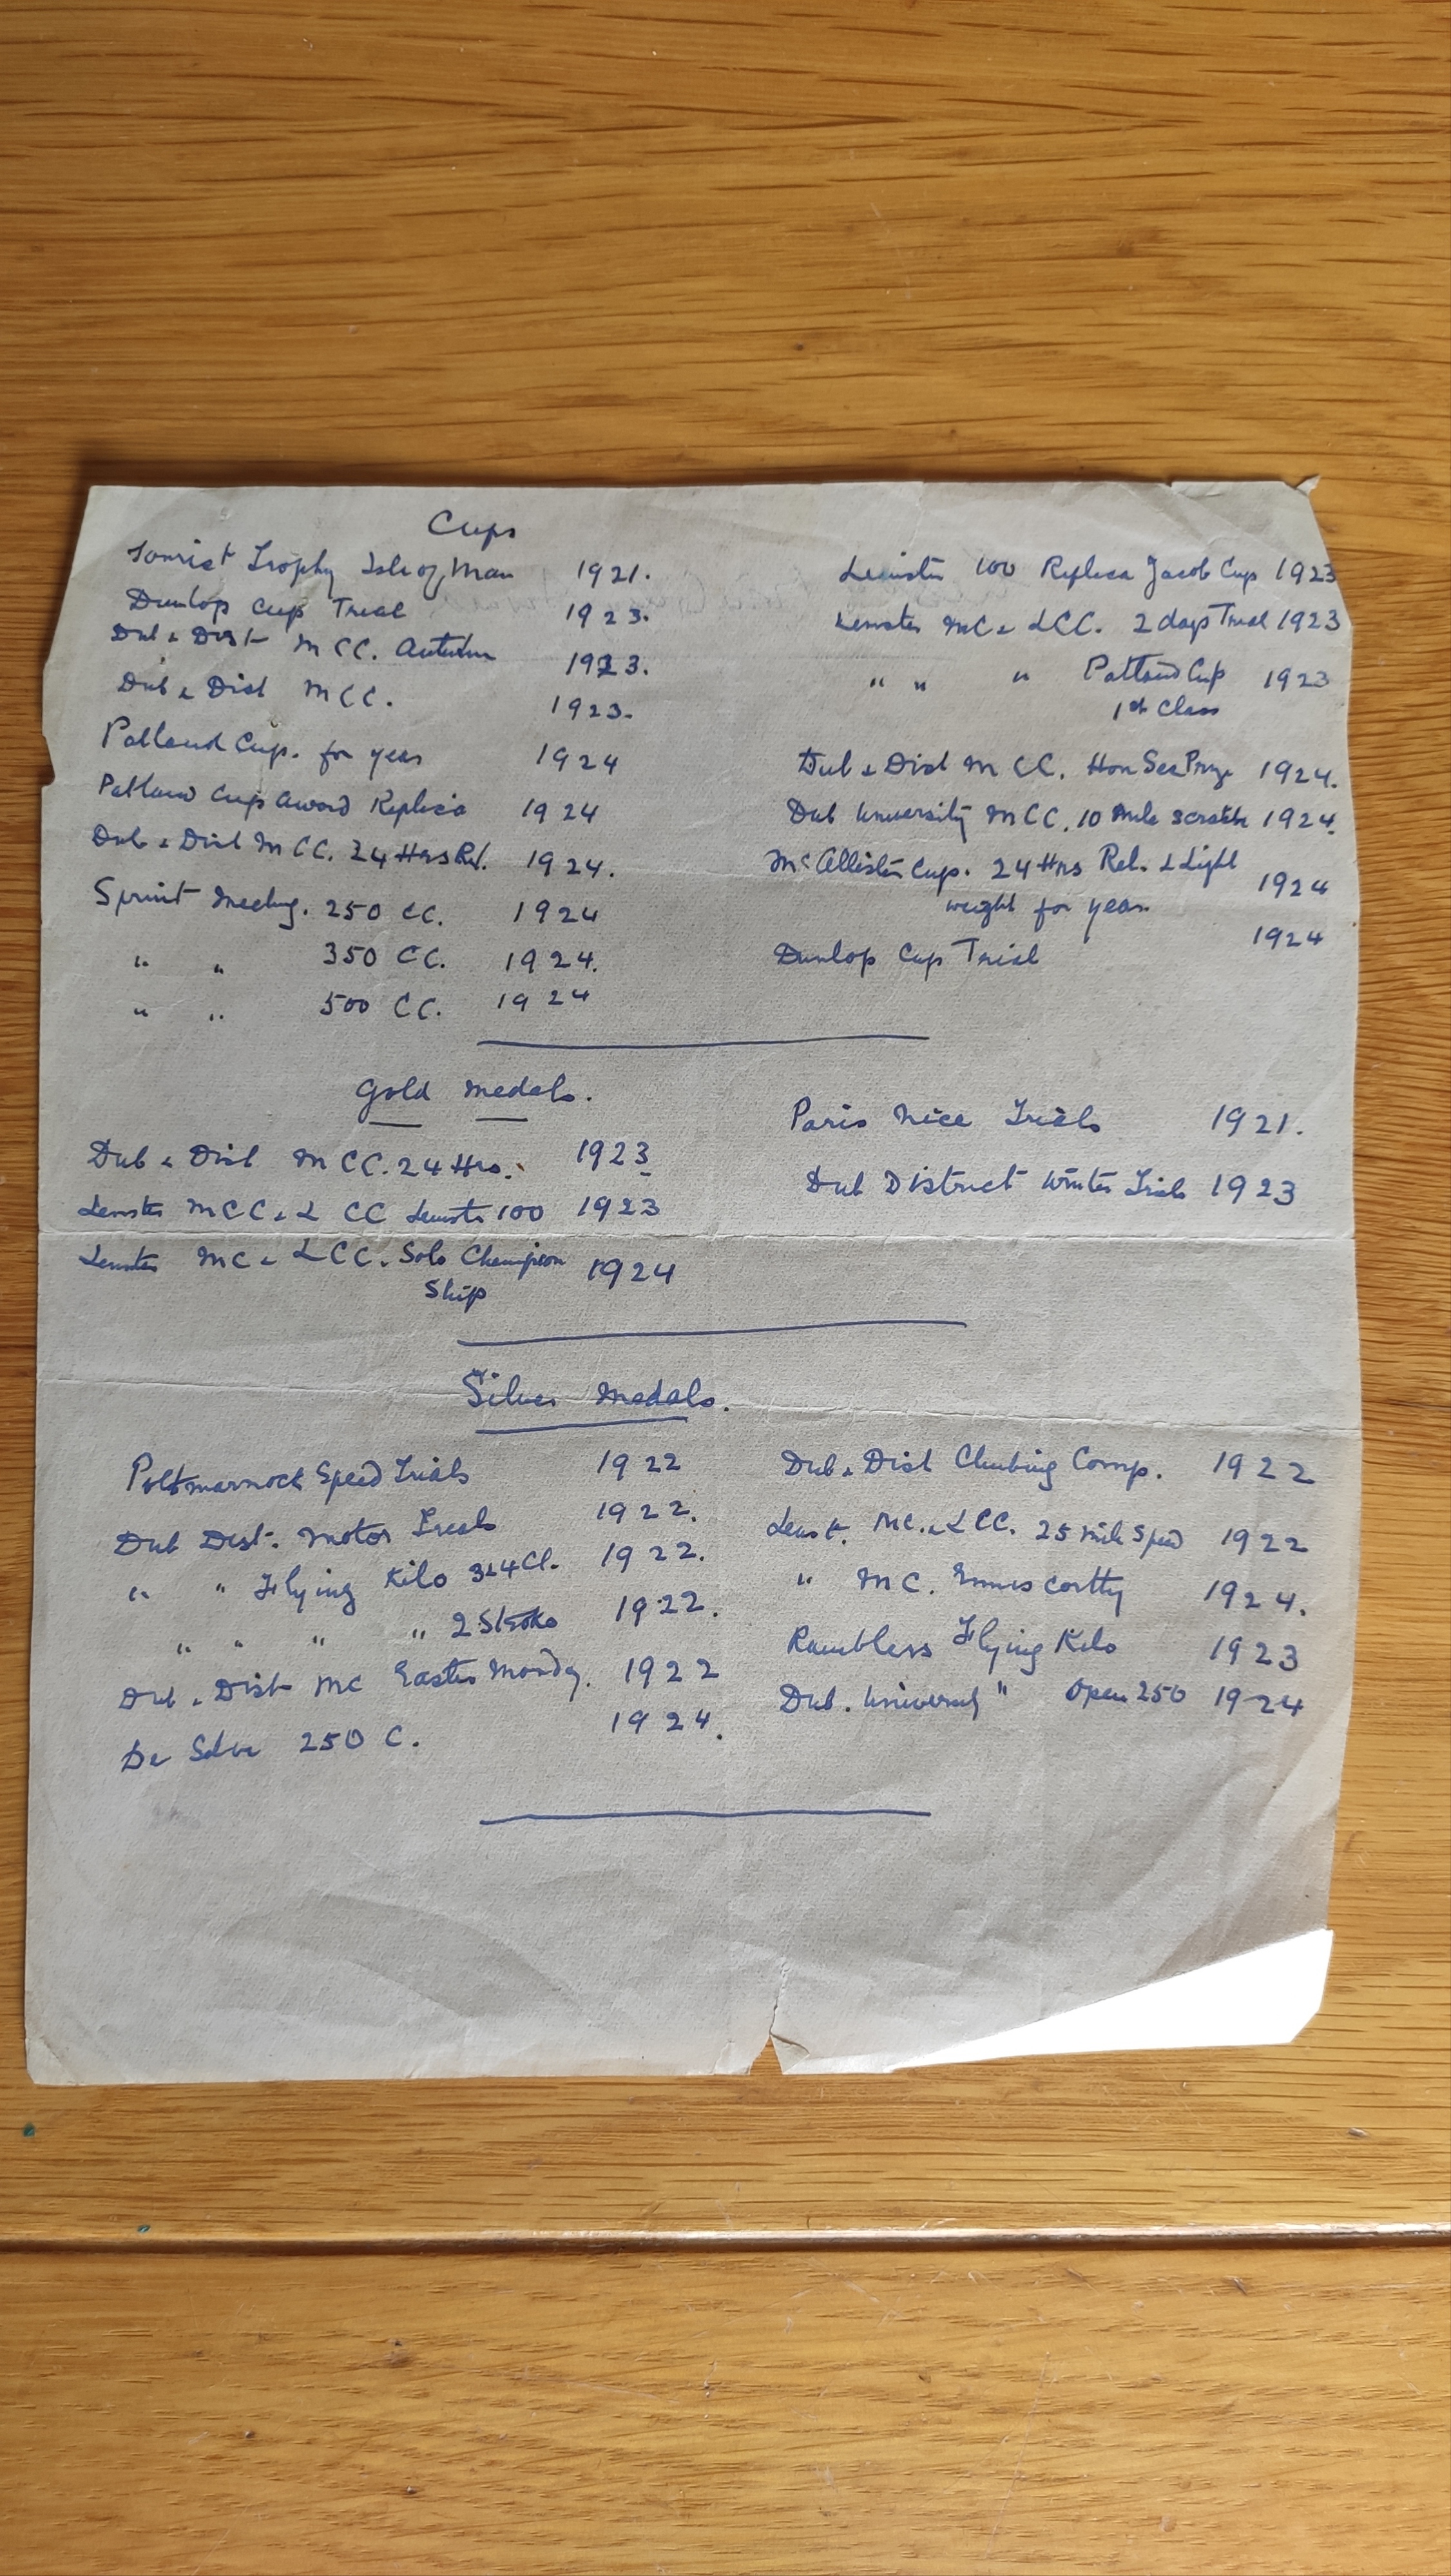 Cups
Tourist Trophy Isle of Man 1921.
Dunlop Cup Trial 1923.
Dub & Dist MCC. Autumn 1923.
Dub & Dist MCC. 1923.
Palland Cup. for year 1924
Palland Cup Award Replica 1924
Dub & Dist MCC. 24 Hrs Rel. 1924.
Sprint Meeting. 250 CC. 1924
" " 350 CC. 1924.
" " 500 CC. 1924
Leinster 100 Replica Jacob Cup 1923
Leinster MC & LCC. 2 days Trial 1923
" " " Palland Cup 1923
1st Class
Dub & Dist MCC. Hon Sec Prize 1924.
Dub University MCC. 10 Mile Scratch 1924.
McAllister Cup. 24 Hrs Rel. & Light
weight for year 1924
Dunlop Cup Trial 1924
Gold Medals.
Dub & Dist MCC. 24 Hrs. 1923
Leinster MCC & L CC Leinster 100 1923
Leinster MC & LCC. Solo Champion
Ship 1924
Paris Nice Trials 1921.
Dub District Winter Trials 1923
Silver Medals.
Portmarnock Speed Trials 1922
Dub Dist. Motor Trials 1922.
" " Flying Kilo 3&4 Cl. 1922.
" " " " 2 Stroke 1922.
Dub & Dist MC Easter Monday. 1922
250 C. 1924.
Dub & Dist Climbing Comp. 1922
Leinst. MC. & LCC. 25 mile Speed 1922
" MC. Enniscorthy 1924.
Ramblers Flying Kilo 1923
Dub. University " Open 250 1924